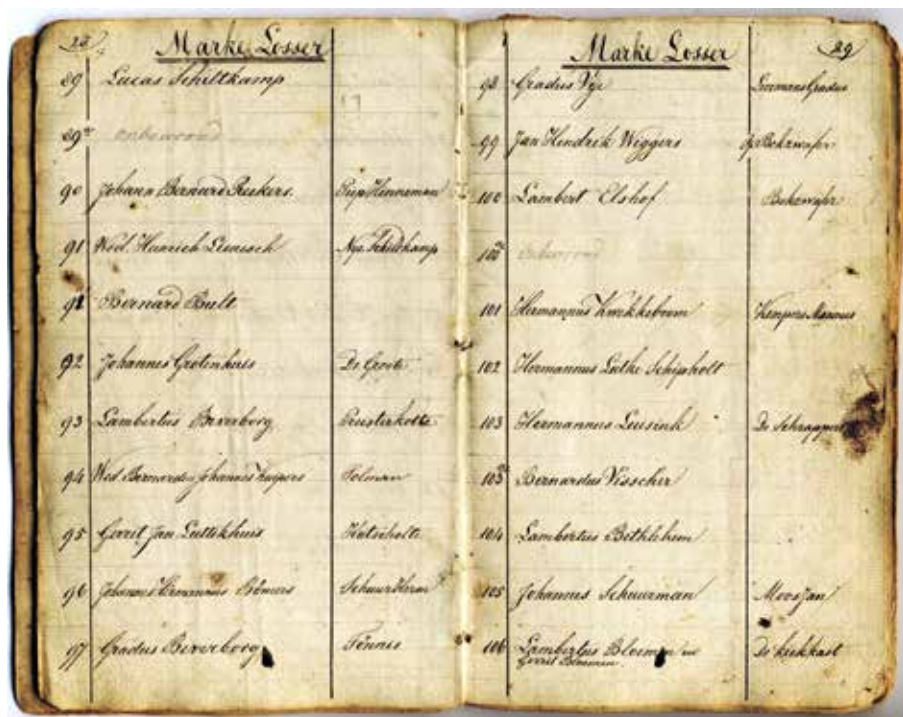 28
Marke Losser
89 Lucas Schiltkamp
89a onbewoond
90 Johann Bernard Reekers Piep Hinneman
91 Wed. Heinrich Nye Schiltkamp
91a Bernard Bult
92 Johannes Grotenhuis De Groote
93 Lambertus Beverborg Peusterkotte
94 Wed. Bernardus Johannes Kuipers Tolman
95 Gerrit Jan Luttekhuis
96 Johannes Hermannus Bömers Schuur Herm
97 Gradus Beverborg Tönnis
Marke Losser
29
98 Gradus Vye Loermans Gradus
99 Jan Hendrik Wiggers
100 Lambert Elshof
100a onbewoond
101 Hermannus Kwekkeboom Kempers Mannus
102 Hermannus Lutke Schipholt
103 Hermannus Leusink De Schrapper
103a Bernardus Visscher
104 Lambertus Bethlehem
105 Johannes Schuurman Moos Jan
106 Lambertus Bloemen en De Kiekkast
Gerrit Bloemen.